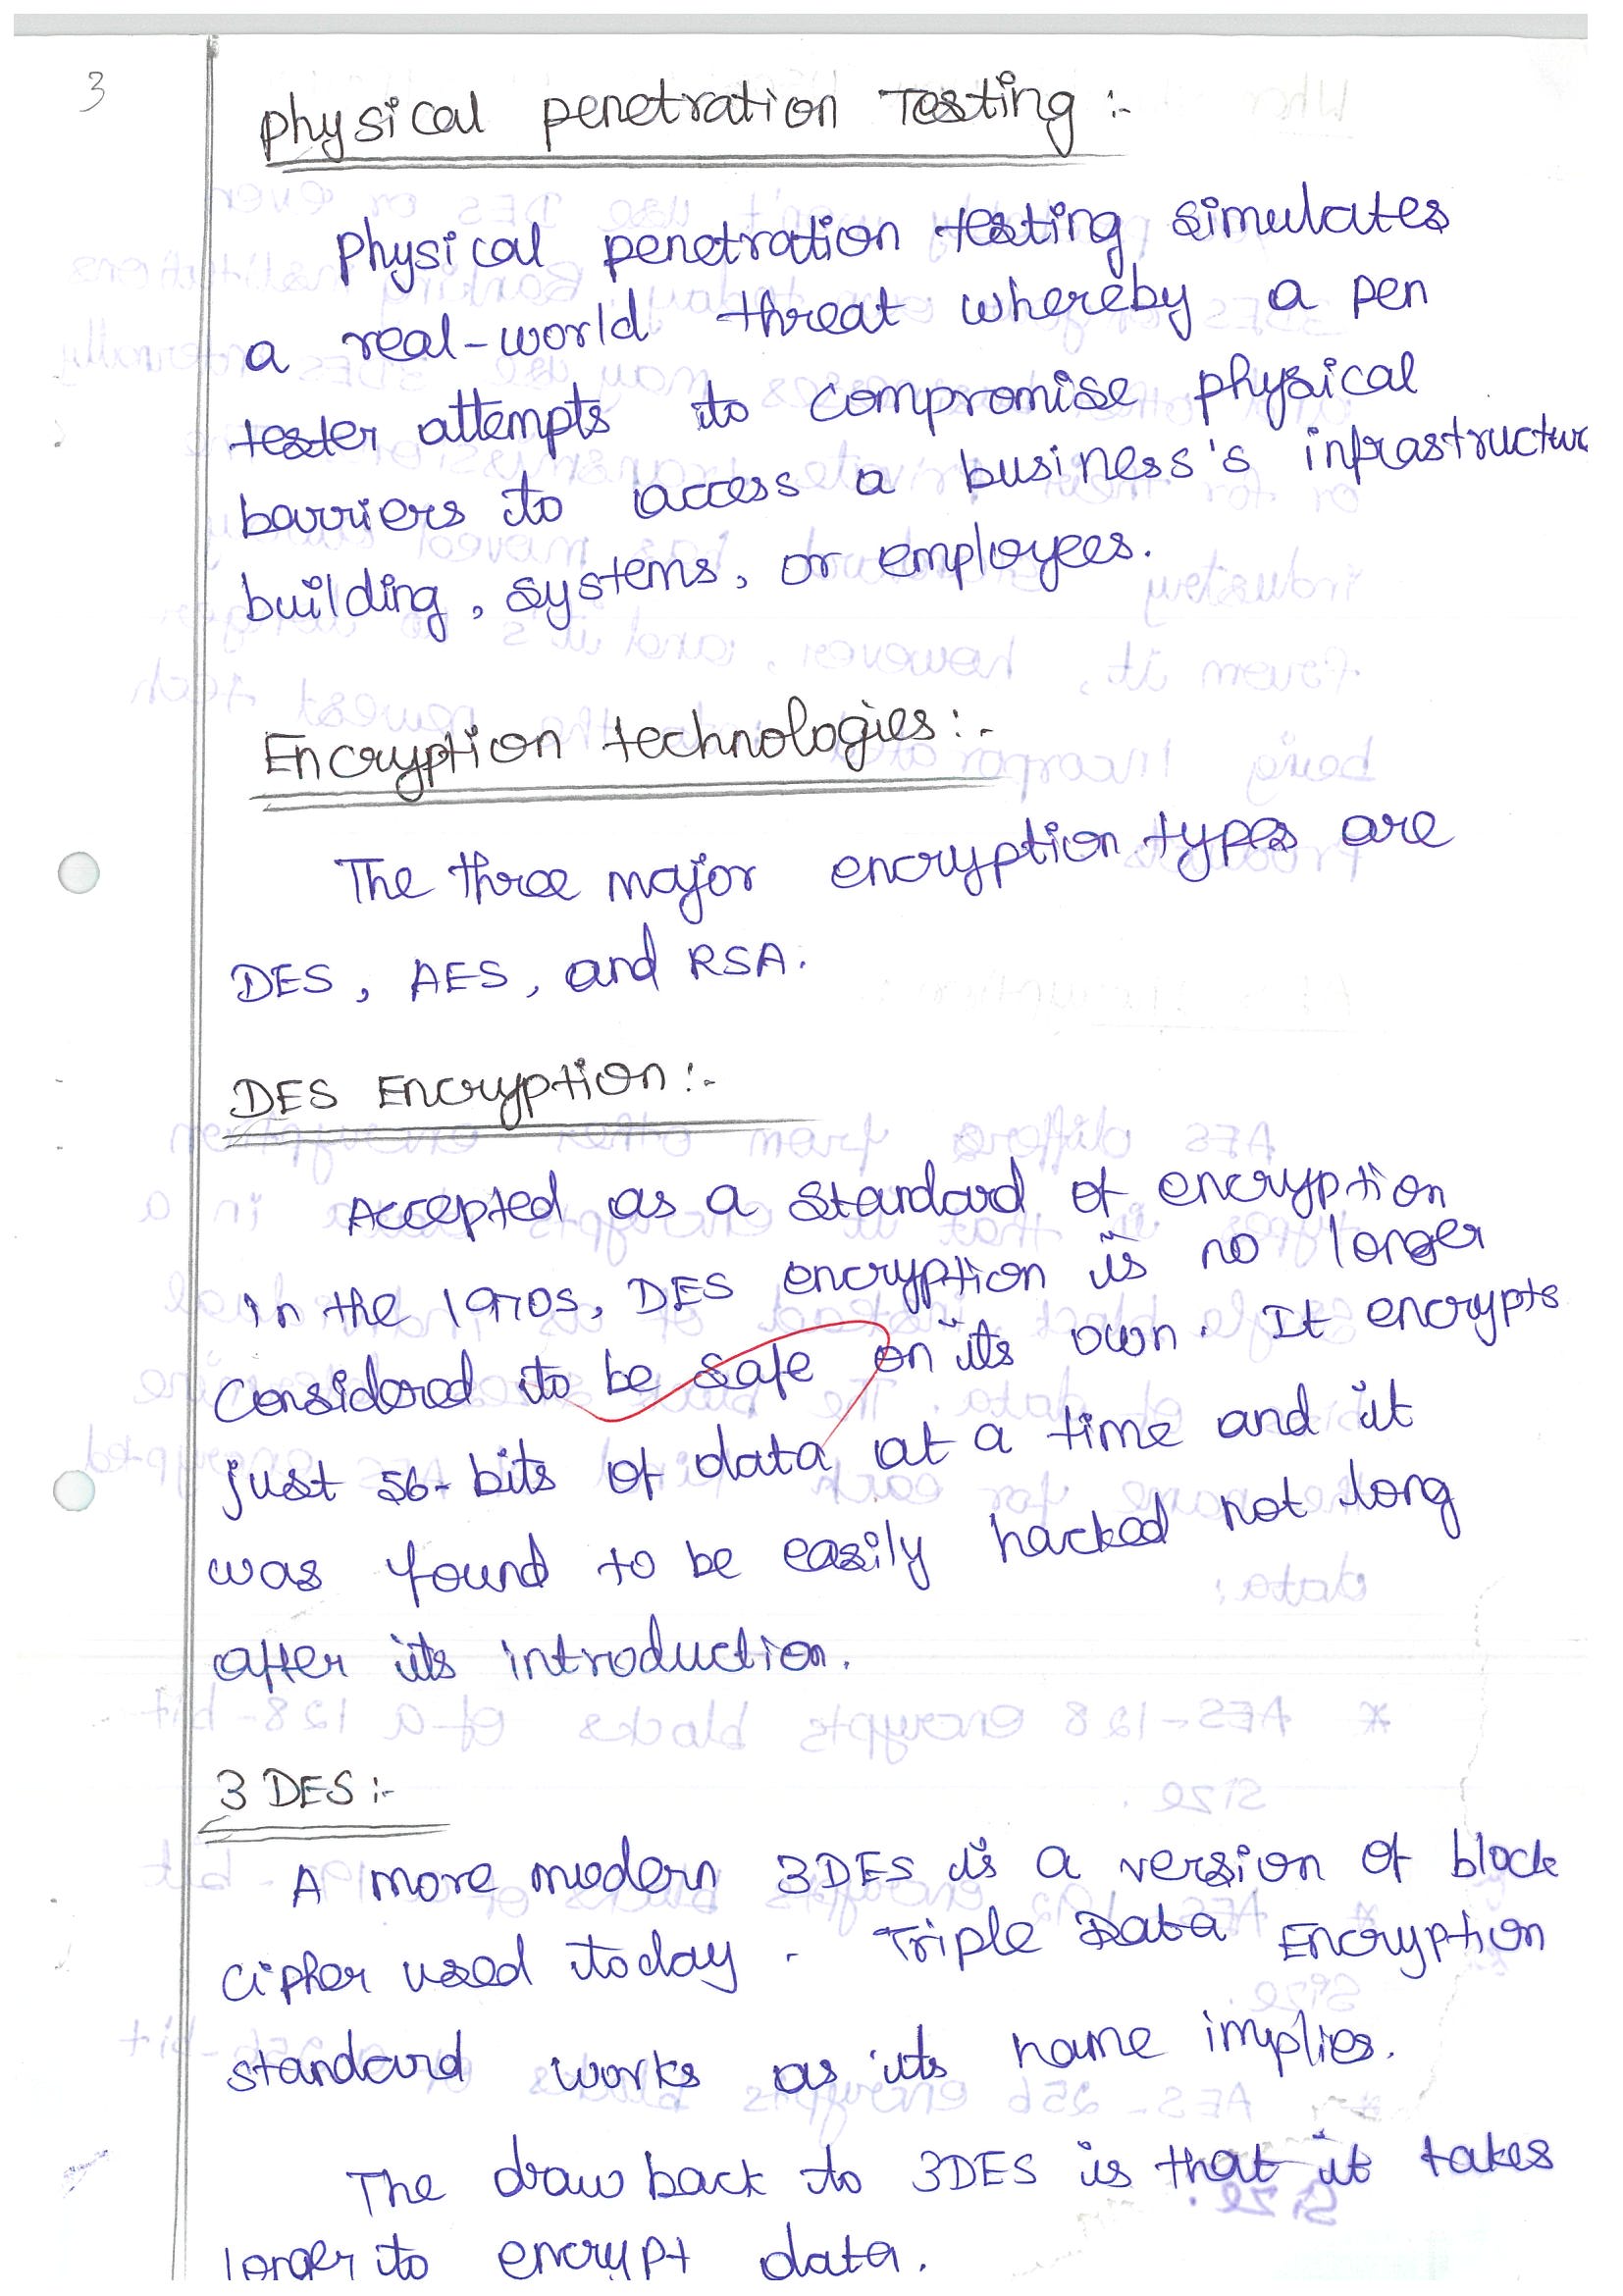 3
Physical penetration Testing :-
Physical penetration testing simulates
a real-world threat whereby a pen
tester attempts to compromise physical
barriers to access a business's infrastructure
building, systems, or employees.
Encryption technologies:-
The three major encryption types are
DES, AES, and RSA.
DES Encryption:-
Accepted as a standard of encryption
in the 1970s, DES encryption is no longer
Considered to be safe on its own. It encrypts
just 56-bits of data at a time and it
was found to be easily hacked not long
after its introduction.
3 DES:-
A more modern 3DES is a version of block
cipher used today. Triple Data Encryption
standard works as its name implies.
The draw back to 3DES is that it takes
longer to encrypt data.